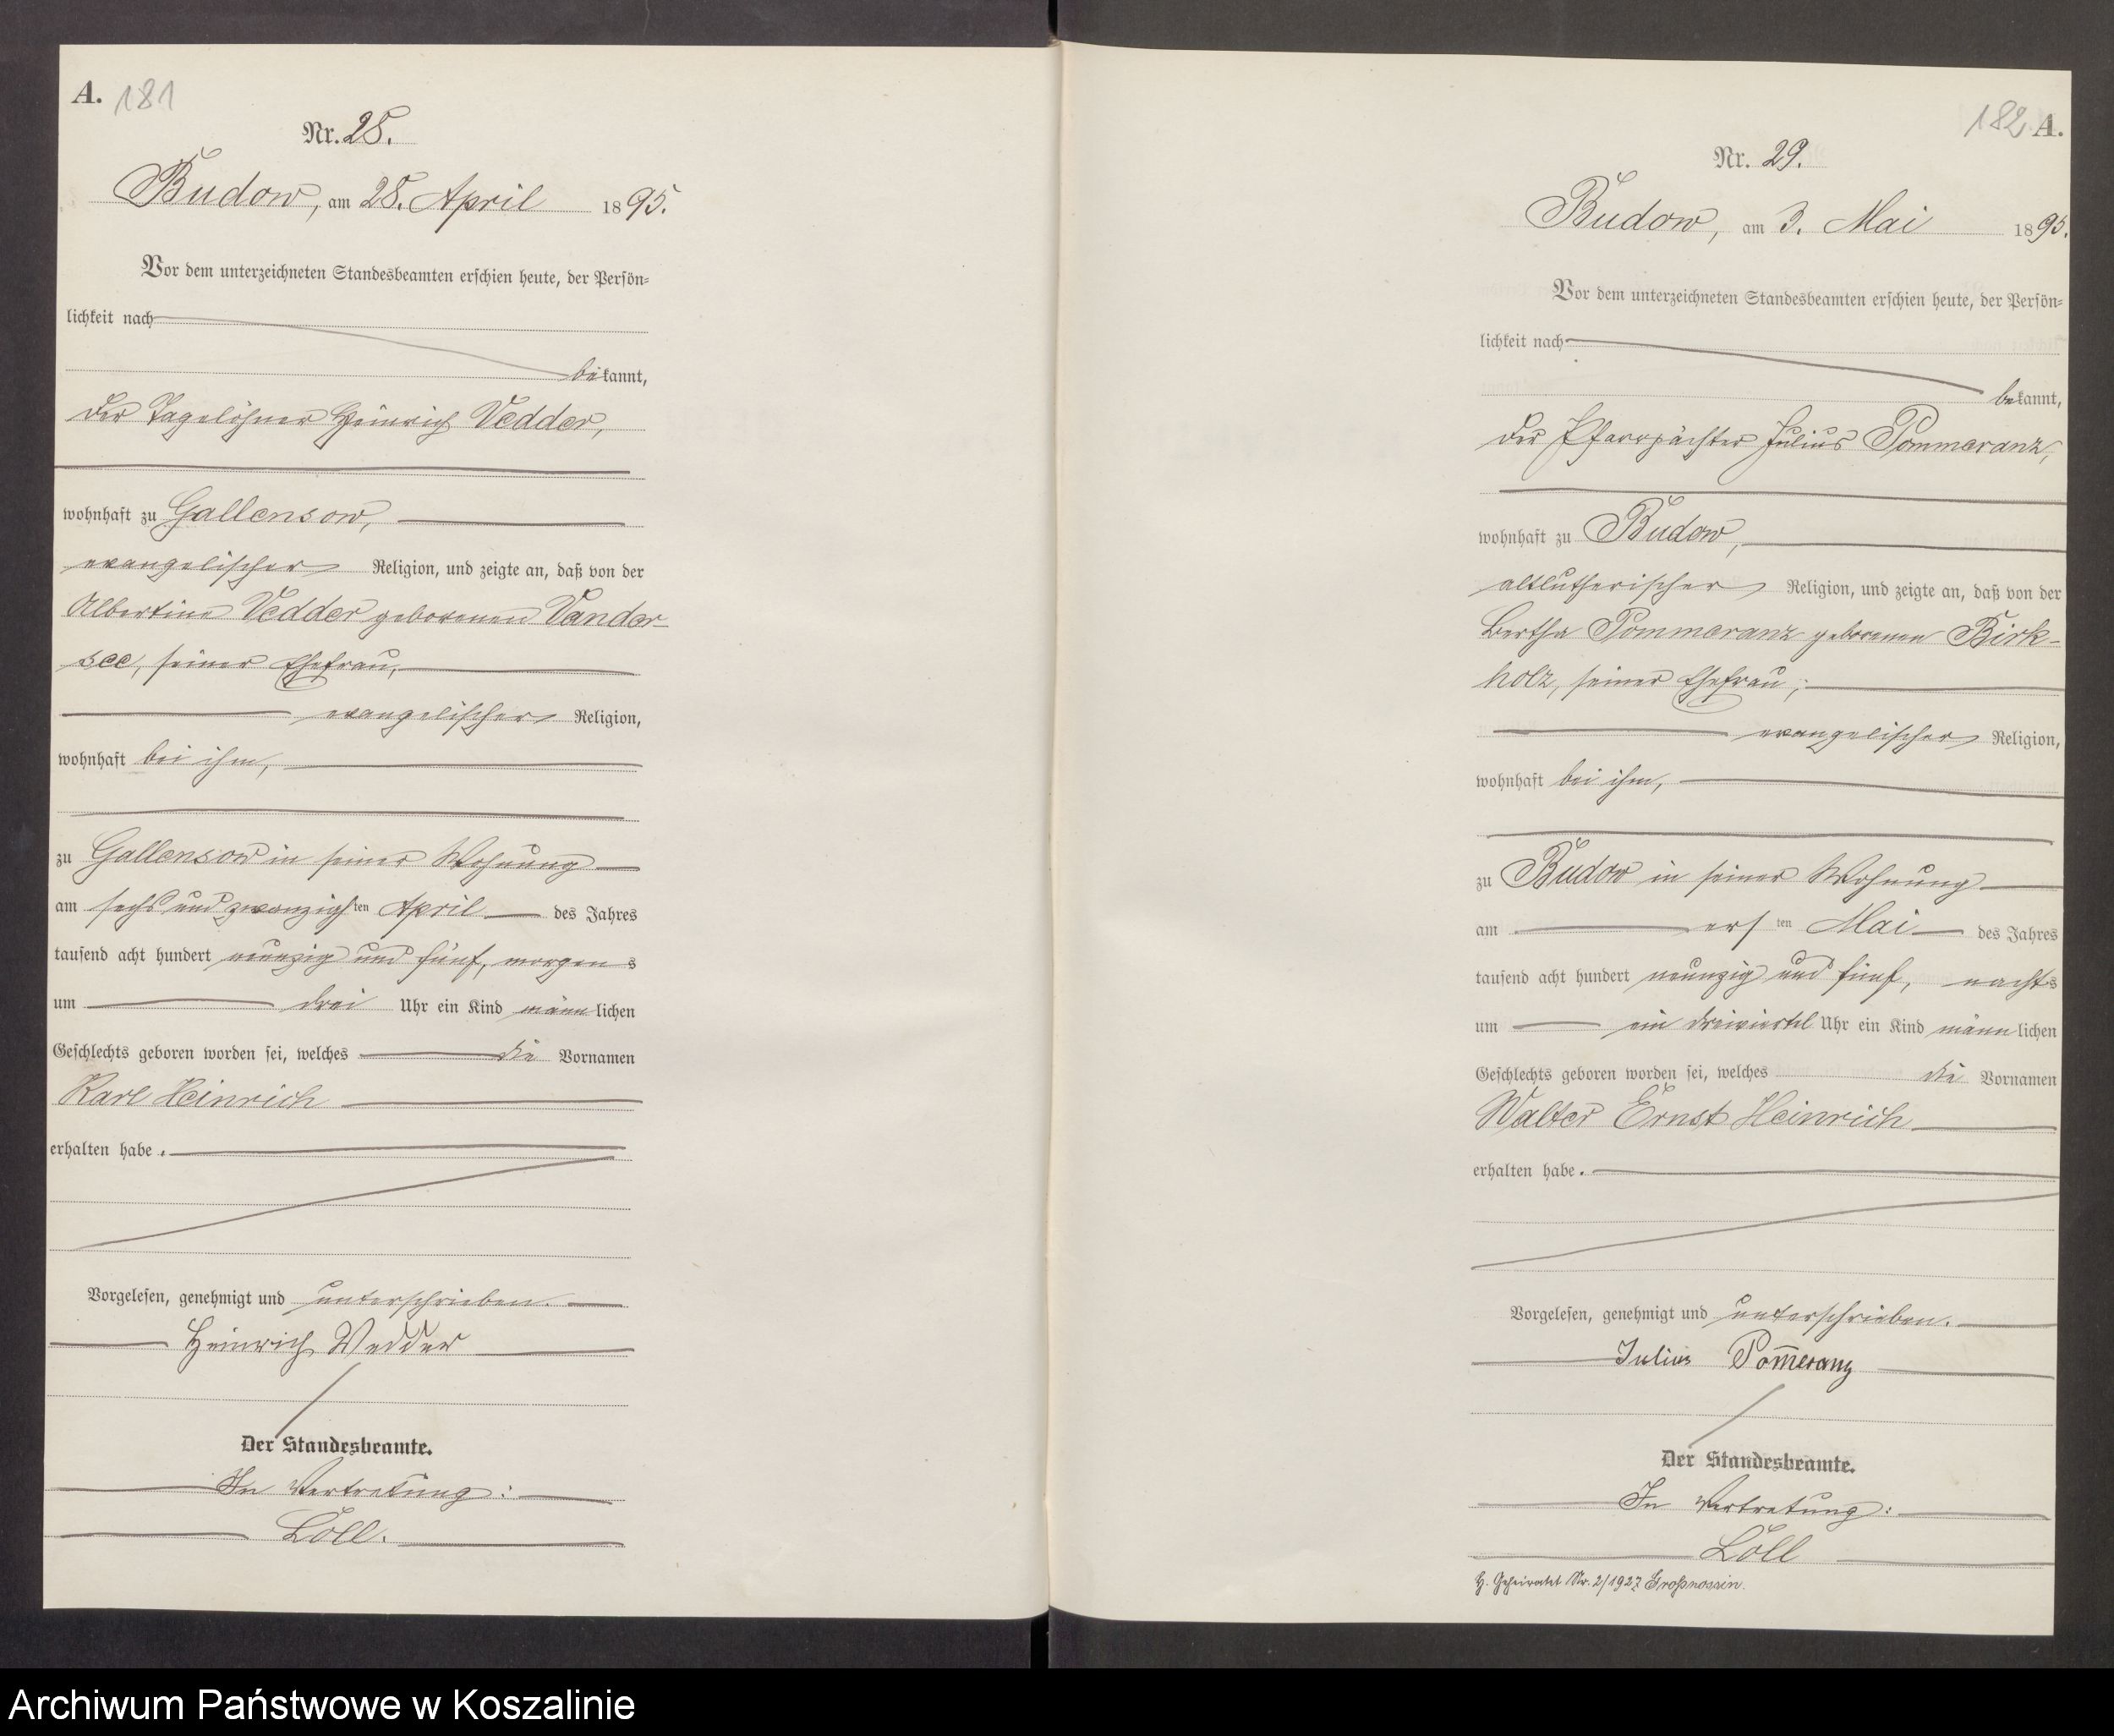 A. 181
Nr. 28.
Budow, am 28. April 1895.
Vor dem unterzeichneten Standesbeamten erschien heute, der Persön-
lichkeit nach
bekannt,
der Tagelöhner Heinrich Vedder,
wohnhaft zu Gallensow,
evangelischer Religion, und zeigte an, daß von der
Albertine Vedder geborenen Vander-
see, seiner Ehefrau,
evangelischer Religion,
wohnhaft bei ihm,
zu Gallensow in seiner Wohnung
am sechs und zwanzigsten April des Jahres
tausend acht hundert neunzig und fünf, morgens
um drei Uhr ein Kind männlichen
Geschlechts geboren worden sei, welches die Vornamen
Karl Heinrich
erhalten habe.
Vorgelesen, genehmigt und unterschrieben.
Heinrich Vedder
Der Standesbeamte.
In Vertretung:
Löll.
182 A.
Nr. 29.
Budow, am 3. Mai 1895.
Vor dem unterzeichneten Standesbeamten erschien heute, der Persön-
lichkeit nach
bekannt,
der Pfarrpächter Julius Pommeranz,
wohnhaft zu Budow,
altlutherischer Religion, und zeigte an, daß von der
Bertha Pommeranz geborenen Birk-
holz, seiner Ehefrau,
evangelischer Religion,
wohnhaft bei ihm,
zu Budow in seiner Wohnung
am ersten Mai des Jahres
tausend acht hundert neunzig und fünf, nachts
um ein dreiviertel Uhr ein Kind männlichen
Geschlechts geboren worden sei, welches die Vornamen
Walter Ernst Heinrich
erhalten habe.
Vorgelesen, genehmigt und unterschrieben.
Julius Pom̅eranz
Der Standesbeamte.
In Vertretung:
Löll
H. Geheiratet Nr. 2/1927 Großnossin.
Archiwum Państwowe w Koszalinie